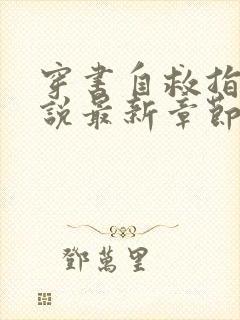 穿書自救指
說最新章節
鄧萬里